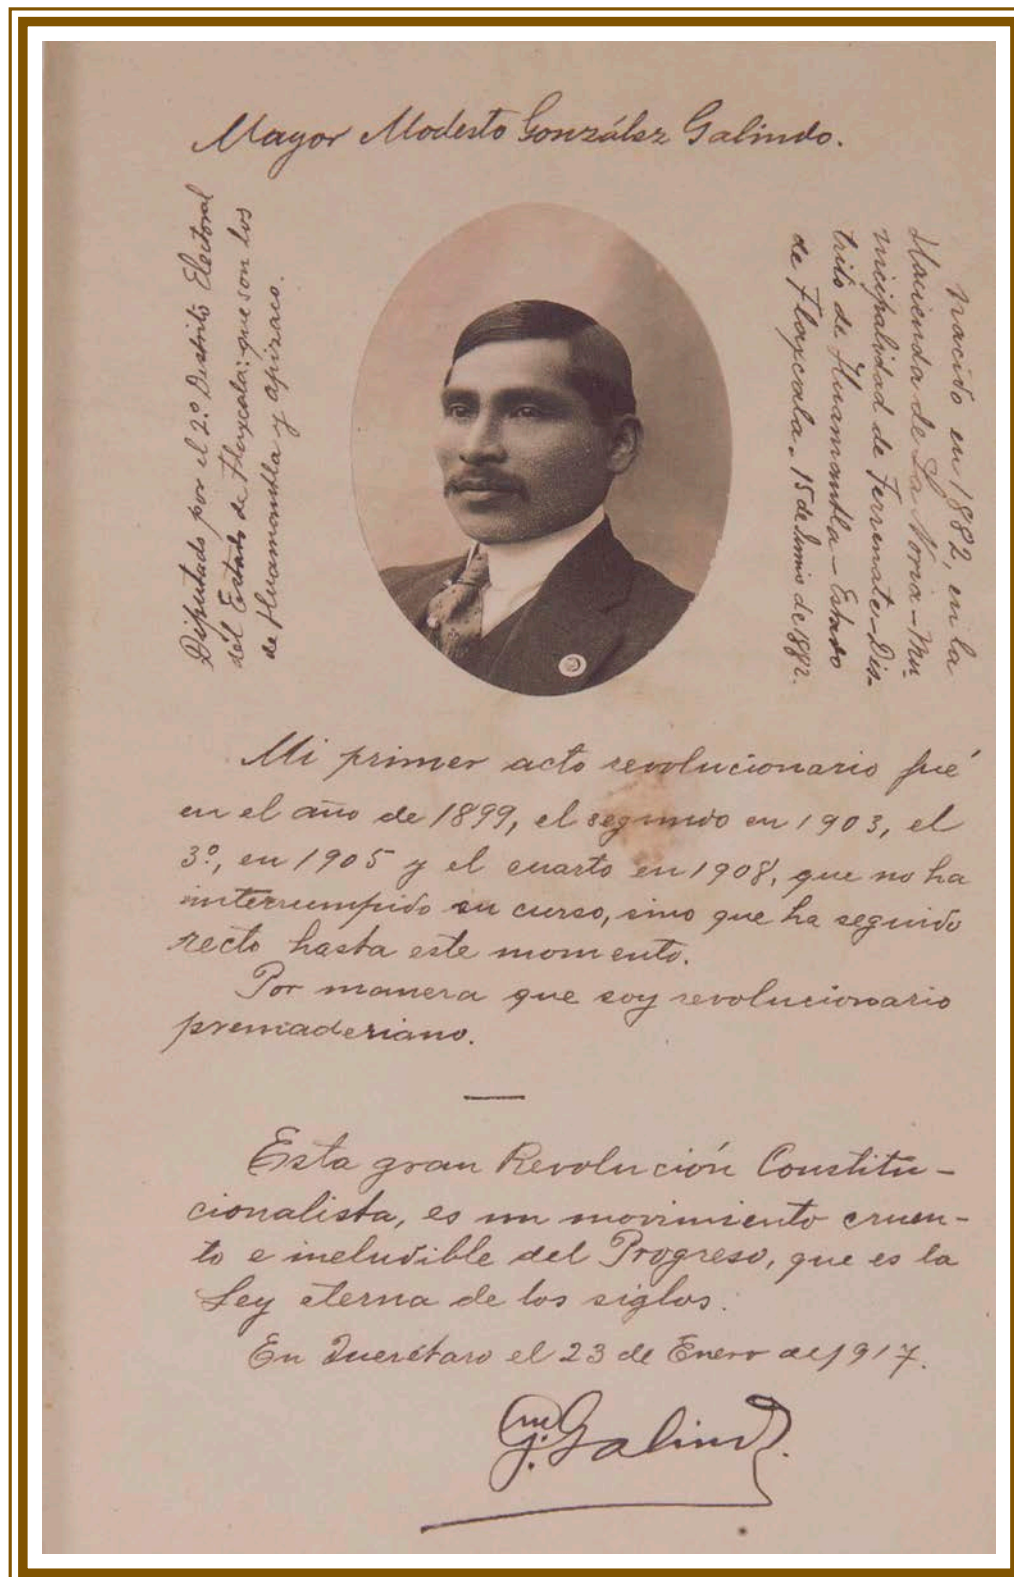 Mayor Modesto González Galindo.
Diputado por el 2.º Distrito Electoral
del Estado de Tlaxcala; que son los
de Huamantla y Apizaco.
Nacido en 1882, en la
Hacienda de La Noria - Mu-
nicipalidad de Terrenate - Dis-
trito de Huamantla - Estado
de Tlaxcala. 15 de Junio de 1882.
Mi primer acto revolucionario fué
en el año de 1899, el segundo en 1903, el
3º, en 1905 y el cuarto en 1908, que no ha
interrumpido su curso, sino que ha seguido
recto hasta este momento.
Por manera que soy revolucionario
premaderiano.
Esta gran Revolución Constitu-
cionalista, es un movimiento cruen-
to e ineludible del Progreso, que es la
Ley eterna de los siglos.
En Querétaro el 23 de Enero de 1917.
M. G. Galindo.